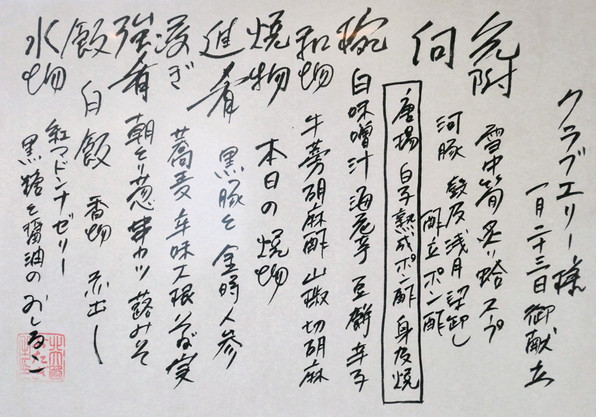 クラブエリー様
一月二十三日御献立
先附 雪中筍 炙り蛤 スープ
向 河豚 鉄皮 浅月 染卸し
酢立ポン酢
唐揚 白子熟成ポン酢 身皮焼
椀 白味噌汁 海老芋 豆餅 辛子
和物 牛蒡胡麻酢 山椒 切胡麻
焼物 本日の焼物
進肴 黒豚と金時人参
凌ぎ 蕎麦 辛味大根 そば実
強肴 朝とり葱 串カツ 蕗みそ
飯 白飯 香物 赤出し
水物 紅マドンナゼリー
黒糖と醤油のおしるこ